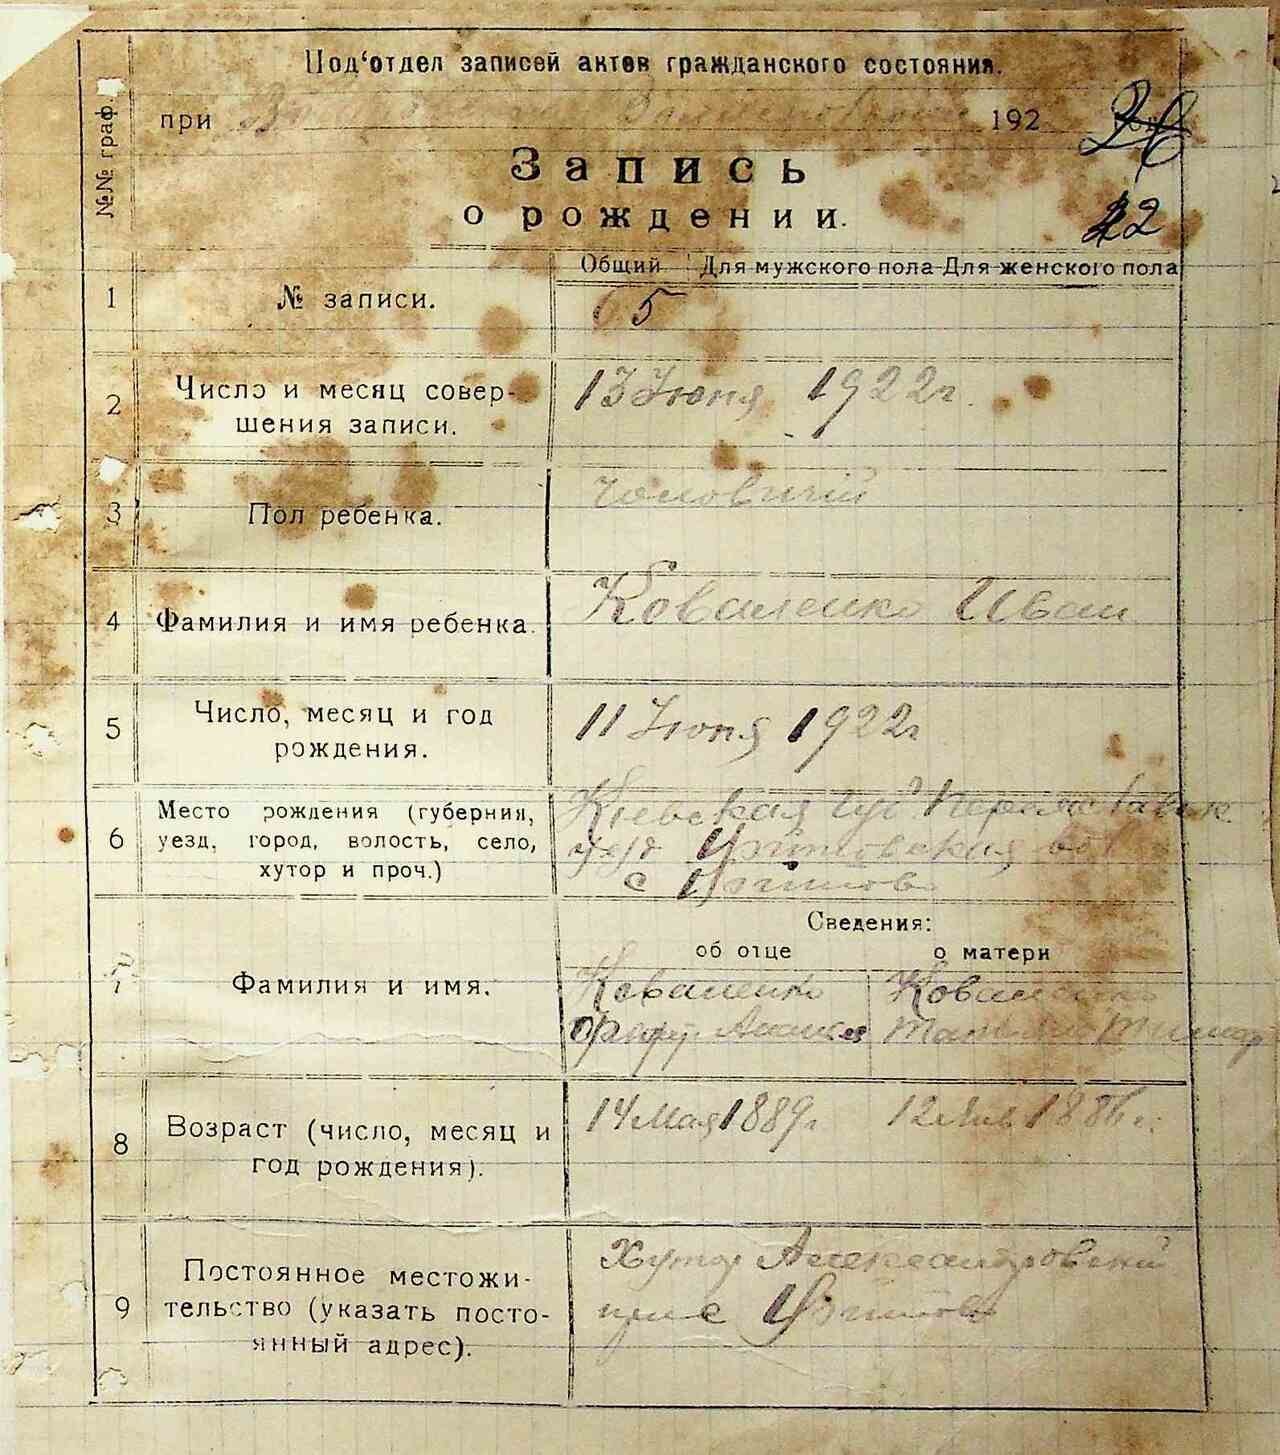 Под‘отдел записей актов гражданского состояния.
при 192
26
Запись
о рождении.
22
№№ граф.
Общий Для мужского пола Для женского пола
1 № записи. 5
2 Число и месяц совер-
шения записи.
13 Июня 1922г.
3 Пол ребенка.
чоловичий
4 Фамилия и имя ребенка.
Коваленко Иван
5 Число, месяц и год
рождения.
11 Июня 1922г
6 Место рождения (губерния,
уезд, город, волость, село,
хутор и проч.)
Киевская губ Переяславск
уезд вол
с
Сведения:
об отце о матери
7 Фамилия и имя.
Коваленко
Коваленко
8 Возраст (число, месяц и
год рождения).
14 Мая 1889г 12 Янв 1886г.
9 Постоянное местожи-
тельство (указать посто-
янный адрес).
Хутор Александровский
при с